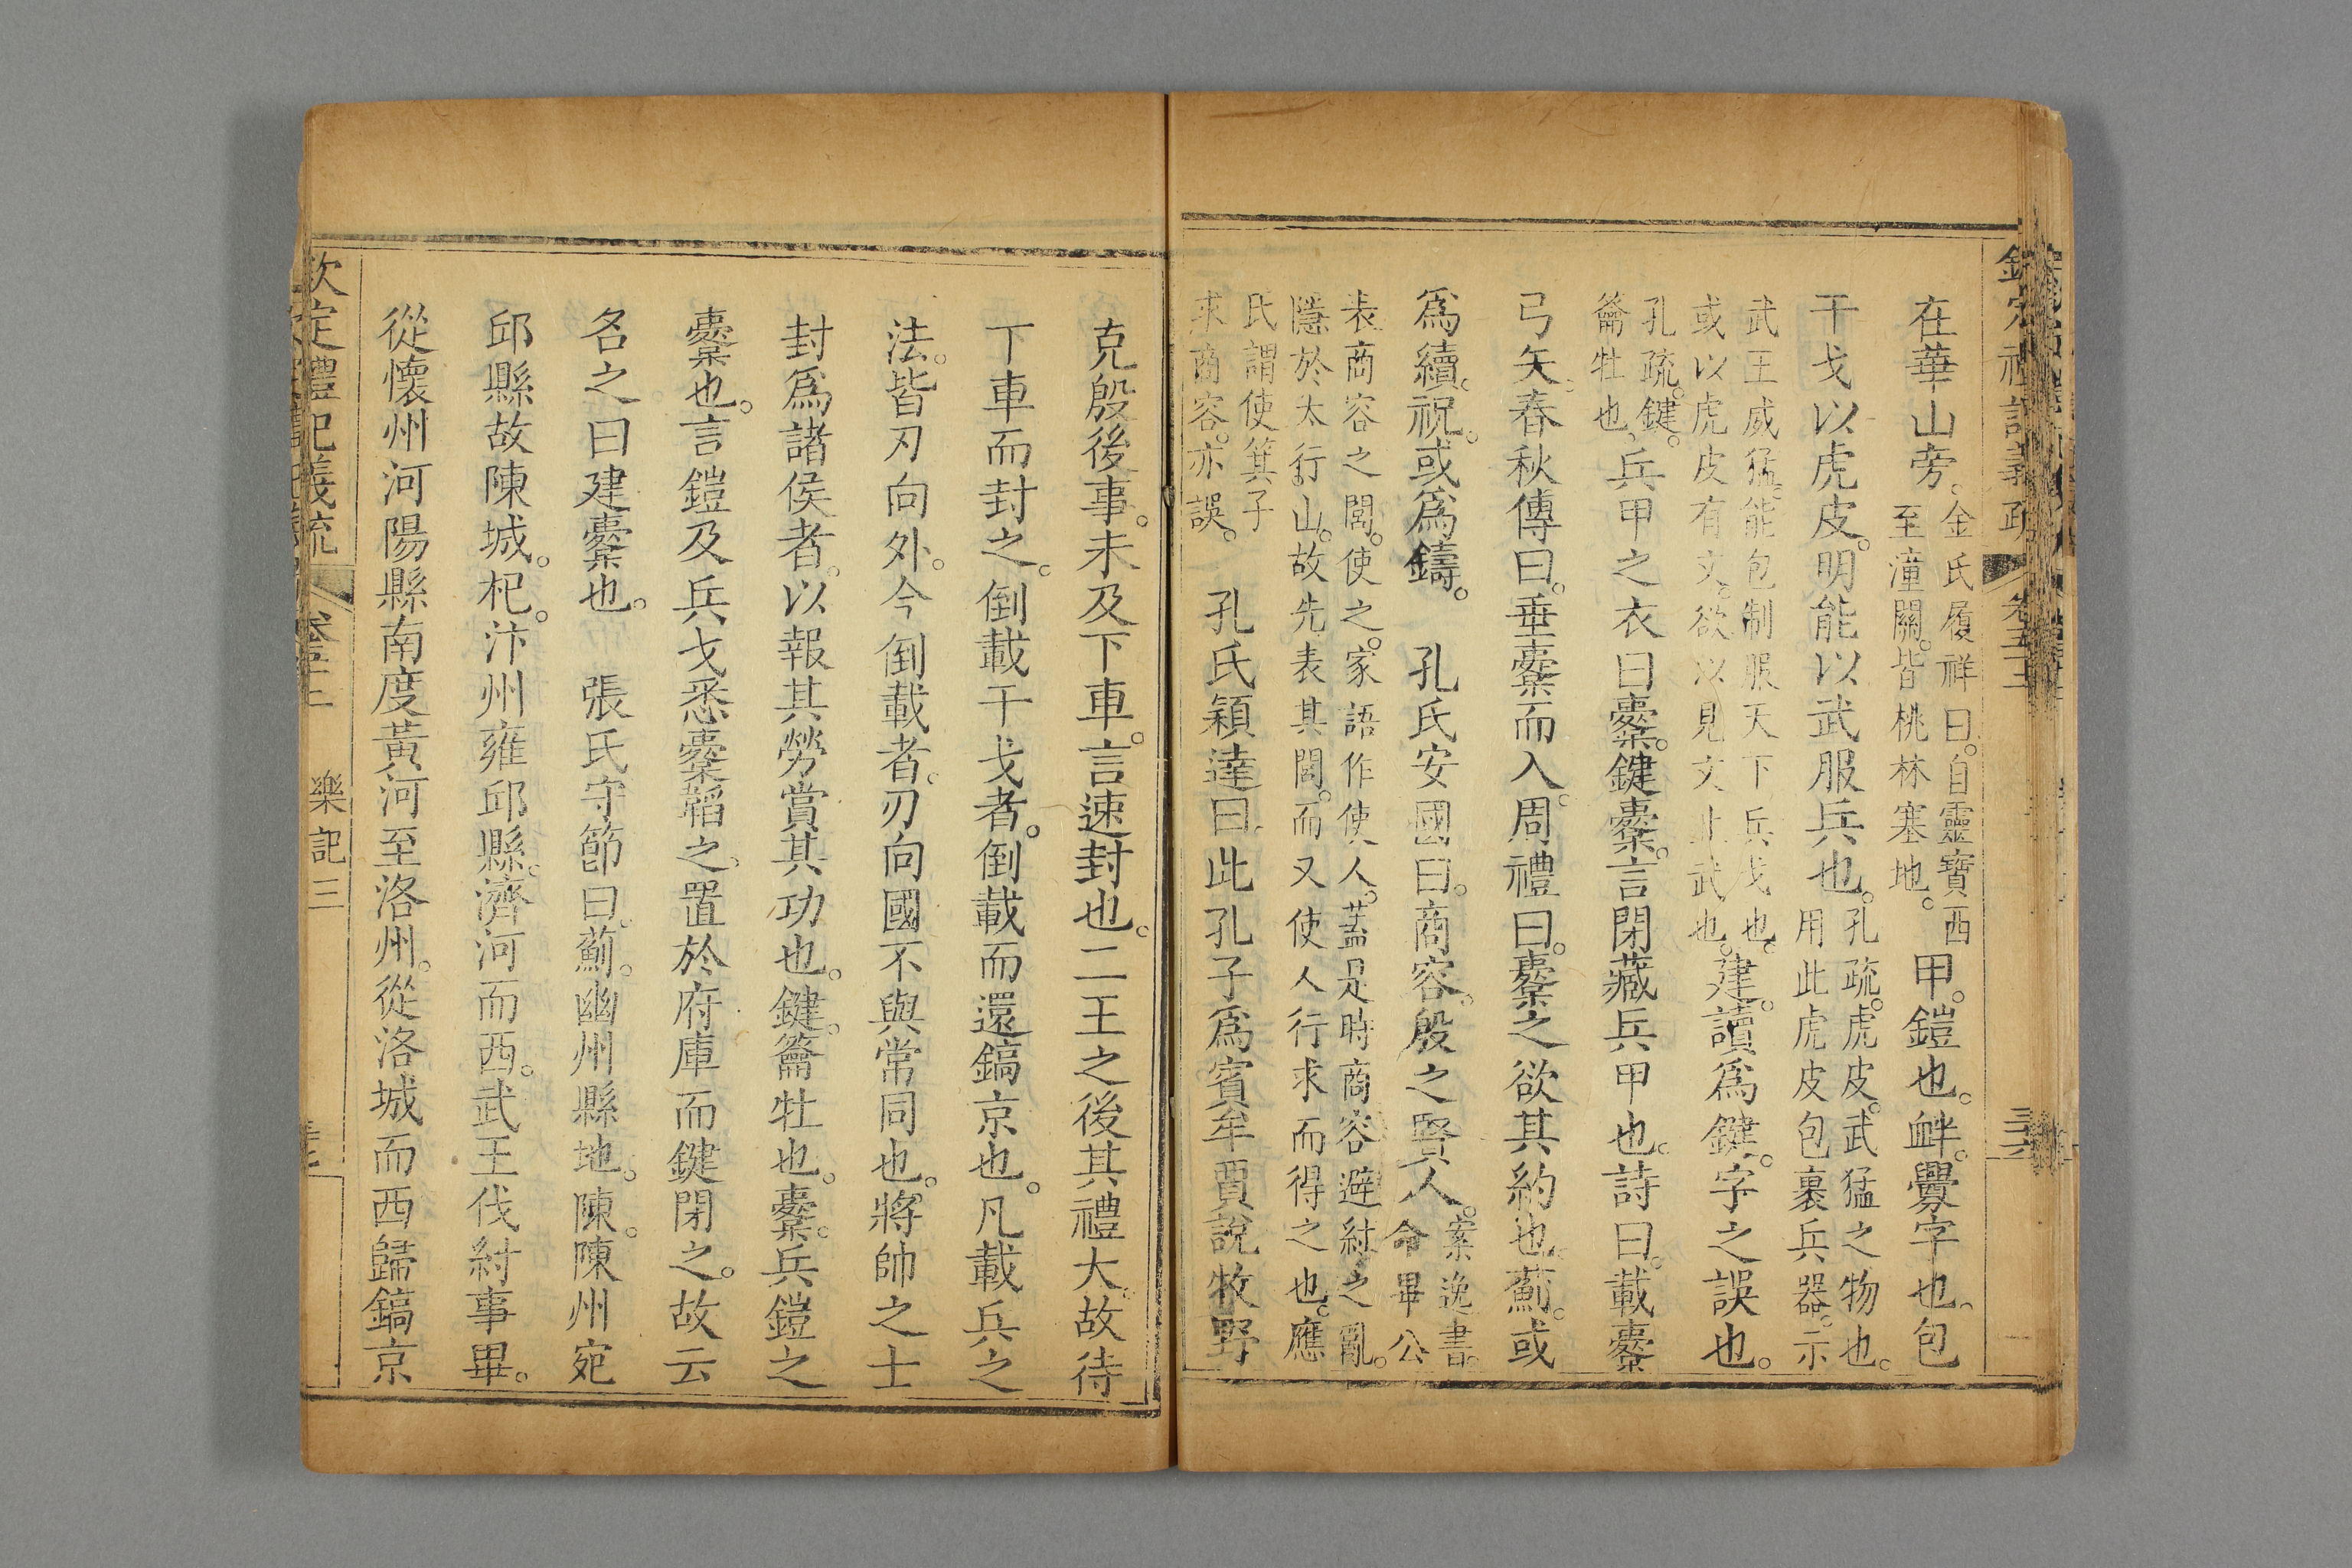 欽定禮記義疏 卷五十二 三十六
在華山旁。金氏履祥曰。自靈寶西至潼關。皆桃林塞地。甲。鎧也。衅。釁字也。包
干戈以虎皮。明能以武服兵也。孔疏。虎皮。武猛之物也。用此虎皮包裹兵器。示
武王威猛。能包制服天下兵戈也。或以虎皮有文。欲以見文止武也。建。讀爲鍵。字之誤也。
孔疏。鍵。籥牡也、兵甲之衣曰櫜。鍵櫜。言閉藏兵甲也。詩曰。載櫜
弓矢。春秋傳曰。垂櫜而入。周禮曰。櫜之欲其約也。薊。或
爲續。祝。或爲鑄。 孔氏安國曰。商容。殷之賢人。案逸書。命畢公
表商容之閭。使之。家語作使人。蓋是時商容避紂之亂。隱於太行山。故先表其閭。而又使人行求而得之也。應
氏謂使箕子求商容。亦誤。 孔氏穎達曰。此孔子爲賓牟賈說牧野
克殷後事。未及下車。言速封也。二王之後其禮大。故待
下車而封之。倒載干戈者。倒載而還鎬京也。凡載兵之
法。皆刃向外。今倒載者。刃向國不與常同也。將帥之士
封爲諸侯者。以報其勞賞其功也。鍵。籥牡也。櫜。兵鎧之
櫜也。言鎧及兵戈悉櫜韜之。置於府庫而鍵閉之。故云
名之曰建櫜也。 張氏守節曰。薊。幽州縣地。陳。陳州宛
邱縣故陳城。杞。汴州雍邱縣。濟河而西。武王伐紂事畢。
從懷州河陽縣南度黃河至洛州。從洛城而西歸鎬京
欽定禮記義疏 卷五十二 樂記三